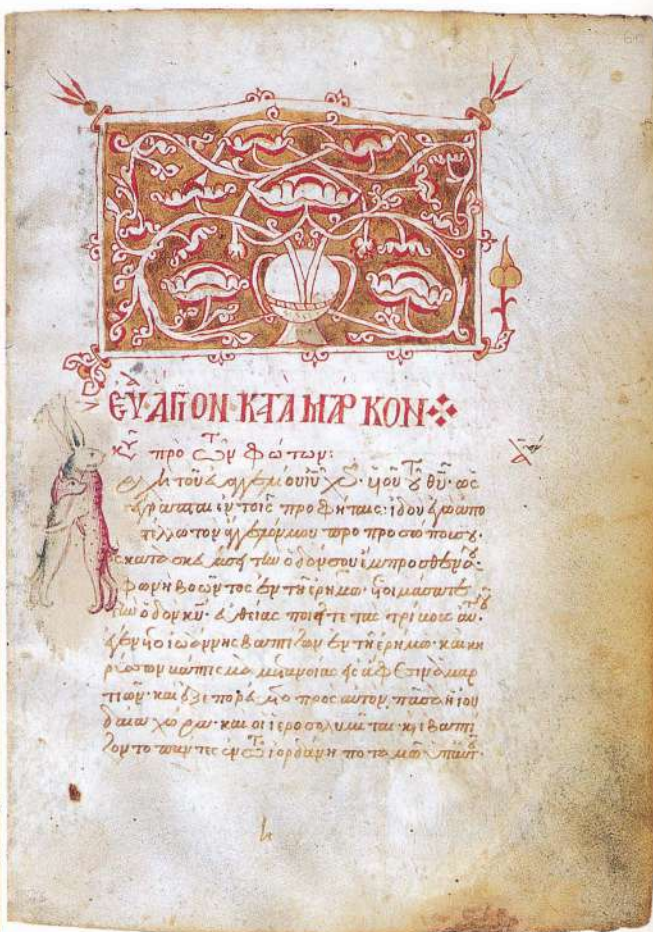 ΕΥΑΓΙΟΝ ΚΑΤΑ ΜΑΡΚΟΝ
πρὸ τῶν φώτων:
τοῦ εὐαγγελίου ἰυ χυ· υἱοῦ τοῦ θυ· ὡς
γέγραπται ἐν τοῖς προφήταις· ἰδοὺ ἐγὼ ἀπο
στέλλω τὸν ἄγγελόν μου πρὸ προσώπου σου·
ὃς κατασκευάσει τὴν ὁδόν σου ἔμπροσθέν σου·
φωνὴ βοῶντος ἐν τῆ ἐρήμω· ἑτοιμάσατε
τὴν ὁδὸν κυ· εὐθείας ποιεῖτε τὰς τρίβους αὐτοῦ·
ἐγένετο ἰωάννης βαπτίζων ἐν τῆ ἐρήμω· καὶ κη
ρύσσων βάπτισμα μετανοίας εἰς ἄφεσιν ἁμαρ
τιῶν· καὶ ἐξεπορεύετο πρὸς αὐτὸν πᾶσα ἡ ἰου
δαία χώρα· καὶ οἱ ἱεροσολυμῖται· καὶ ἐβαπτί
ζοντο πάντες ἐν τῶ ἰορδάνη ποταμῶ